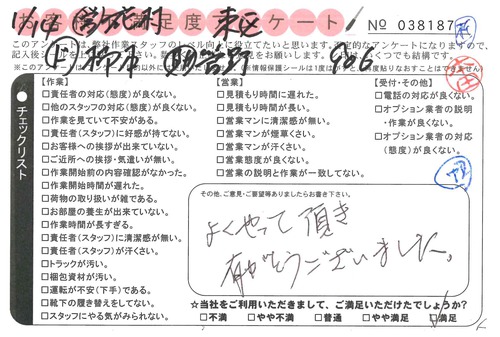 11/14
お客様満足度アンケート
No 038187
このアンケートは、弊社作業スタッフのレベル向上に役立てたいと思います。
646
チェックリスト
【作業】
□責任者の対応(態度)が良くない。
□他のスタッフの対応(態度)が良くない。
□作業を見ていて不安がある。
□責任者(スタッフ)に好感が持てない。
□お客様への挨拶が出来ていない。
□ご近所への挨拶・気遣いが無い。
□作業開始前の内容確認がなかった。
□作業開始時間が遅れた。
□荷物の取り扱いが雑である。
□お部屋の養生が出来ていない。
□作業時間が長すぎる。
□責任者(スタッフ)に清潔感が無い。
□責任者(スタッフ)が汗くさい。
□トラックが汚い。
□梱包資材が汚い。
□運転が不安(下手)である。
□靴下の履き替えをしてない。
□スタッフにやる気がみられない。
【営業】
□見積もり時間に遅れた。
□見積もり時間が長い。
□営業マンに清潔感が無い。
□営業マンが煙草くさい。
□営業マンが汗くさい。
□営業態度が良くない。
□営業の説明と作業が一致してない。
【受付・その他】
□電話の対応が良くない。
□オプション業者の説明・作業が良くない。
□オプション業者の対応(態度)が良くない。
その他、ご意見・ご要望等ありましたらお書き下さい。
よくやって頂き
有がとうございました。
☆当社をご利用いただきまして、ご満足いただけたでしょうか?
□不満 □やや不満 □普通 □やや満足 □満足